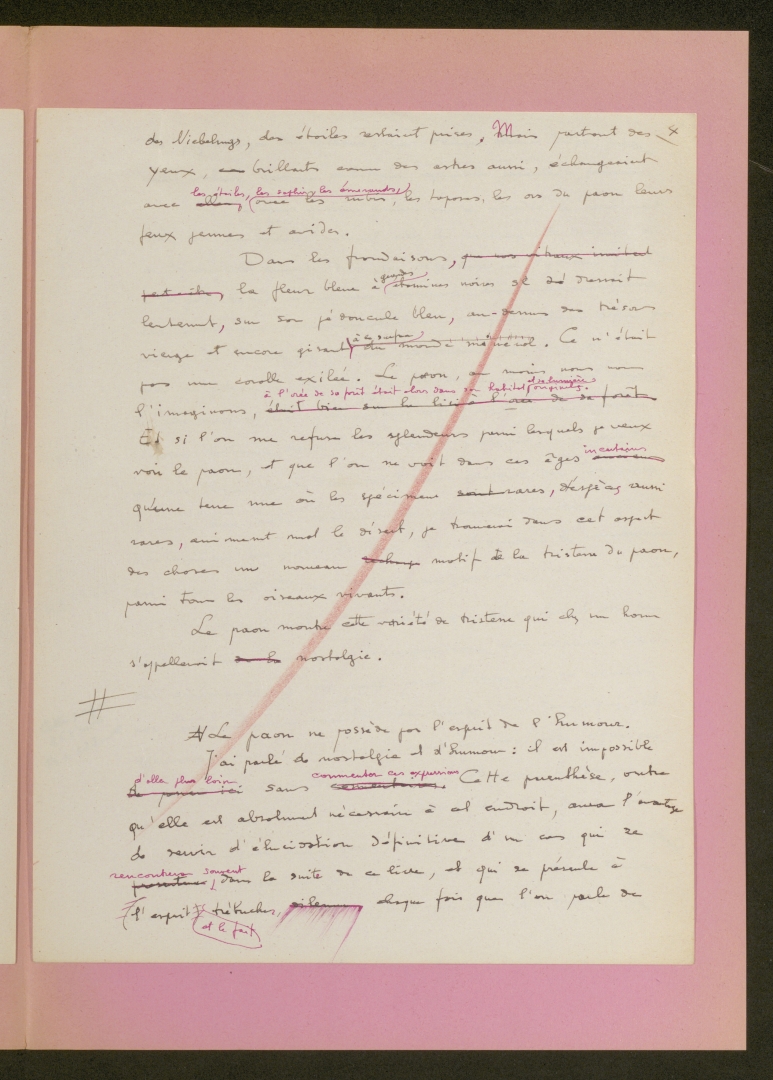 des Niebelungs, des étoiles restaient prises. Mais partout des 4
yeux, brillants comme des astres aussi, échangeaient
les étoiles, les saphirs, les émeraudes,
avec avec les rubis, les topazes, les ors du paon leurs
feux jaunes et avides.
Dans les frondaisons, que nos vitraux imitent
grandes
peut-être, la fleur bleue à étamines noires se dressait
lentement, sur son pédoncule bleu, au-dessus des trésors
vierge et encore gisant du monde minéral. Ce n'était
pas une corolle exilée. Le paon, du moins nous nous
à l'orée de sa forêt était alors dans son habitat et sa lumière originels.
l'imaginons, était bien sur le lieu à l'orée de sa forêt
Et si l'on me refuse les splendeurs parmi lesquels je veux
voir le paon, et que l'on ne voit dans ces âges incertains
qu'une terre nue où les spécimens sont rares, d'espèces aussi
rares, animaient mal le désert, je trouverai dans cet aspect
des choses un nouveau motif de la tristesse du paon,
parmi tous les oiseaux vivants.
Le paon montre cette variété de tristesse qui chez un homme
s'appellerait de la nostalgie.
# Le paon ne possède pas l'esprit de l'humour.
J'ai parlé de nostalgie et d'humour : il est impossible
d'aller plus loin sans commenter ces expressions Cette parenthèse, outre
qu'elle est absolument nécessaire à cet endroit, aura l'avantage
de servir d'élucidation définitive d'un cas qui se
rencontrera souvent
dans la suite de ce livre, et qui se présente à
l'esprit et le fait trébucher, chaque fois que l'on parle de